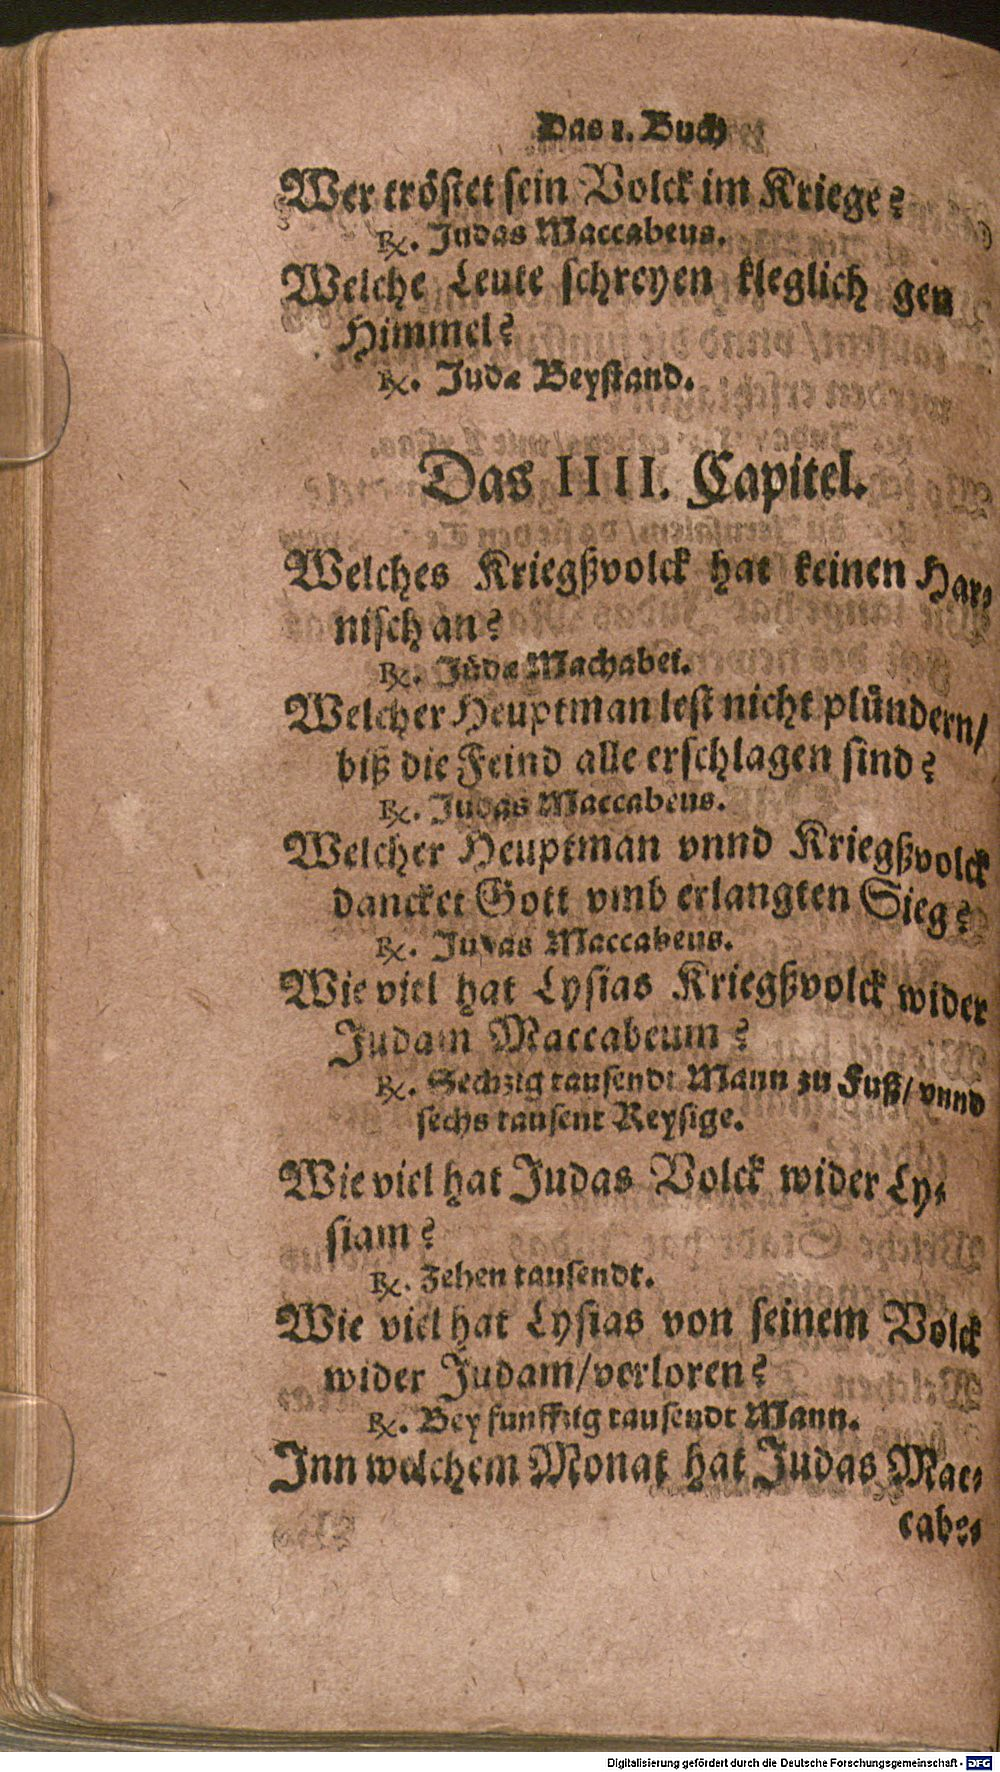 Das 1. Buch
Wer tröstet sein Volck im Kriege?
℞. Judas Maccabeus.
Welche Leute schreyen kleglich gen
Himmel?
℞. Judæ Beystand.
Das IIII. Capitel.
Welches Kriegßvolck hat keinen Har-
nisch an?
℞. Jüdæ Machabei.
Welcher Heuptman lest nicht plündern/
biß die Feind alle erschlagen sind?
℞. Judas Maccabeus.
Welcher Heuptman vnnd Kriegßvolck
dancket Gott vmb erlangten Sieg?
℞. Judas Maccabeus.
Wie viel hat Lysias Kriegßvolck wider
Judam Maccabeum?
℞. Sechzig tausendt Mann zu Fuß/ vnnd
sechs tausent Reysige.
Wie viel hat Judas Volck wider Ly-
siam?
℞. Zehen tausendt.
Wie viel hat Lysias von seinem Volck
wider Judam/verloren?
℞. Bey funffzig tausendt Mann.
Inn welchem Monat hat Judas Mac-
cabe-
Digitalisierung gefördert durch die Deutsche Forschungsgemeinschaft - DFG